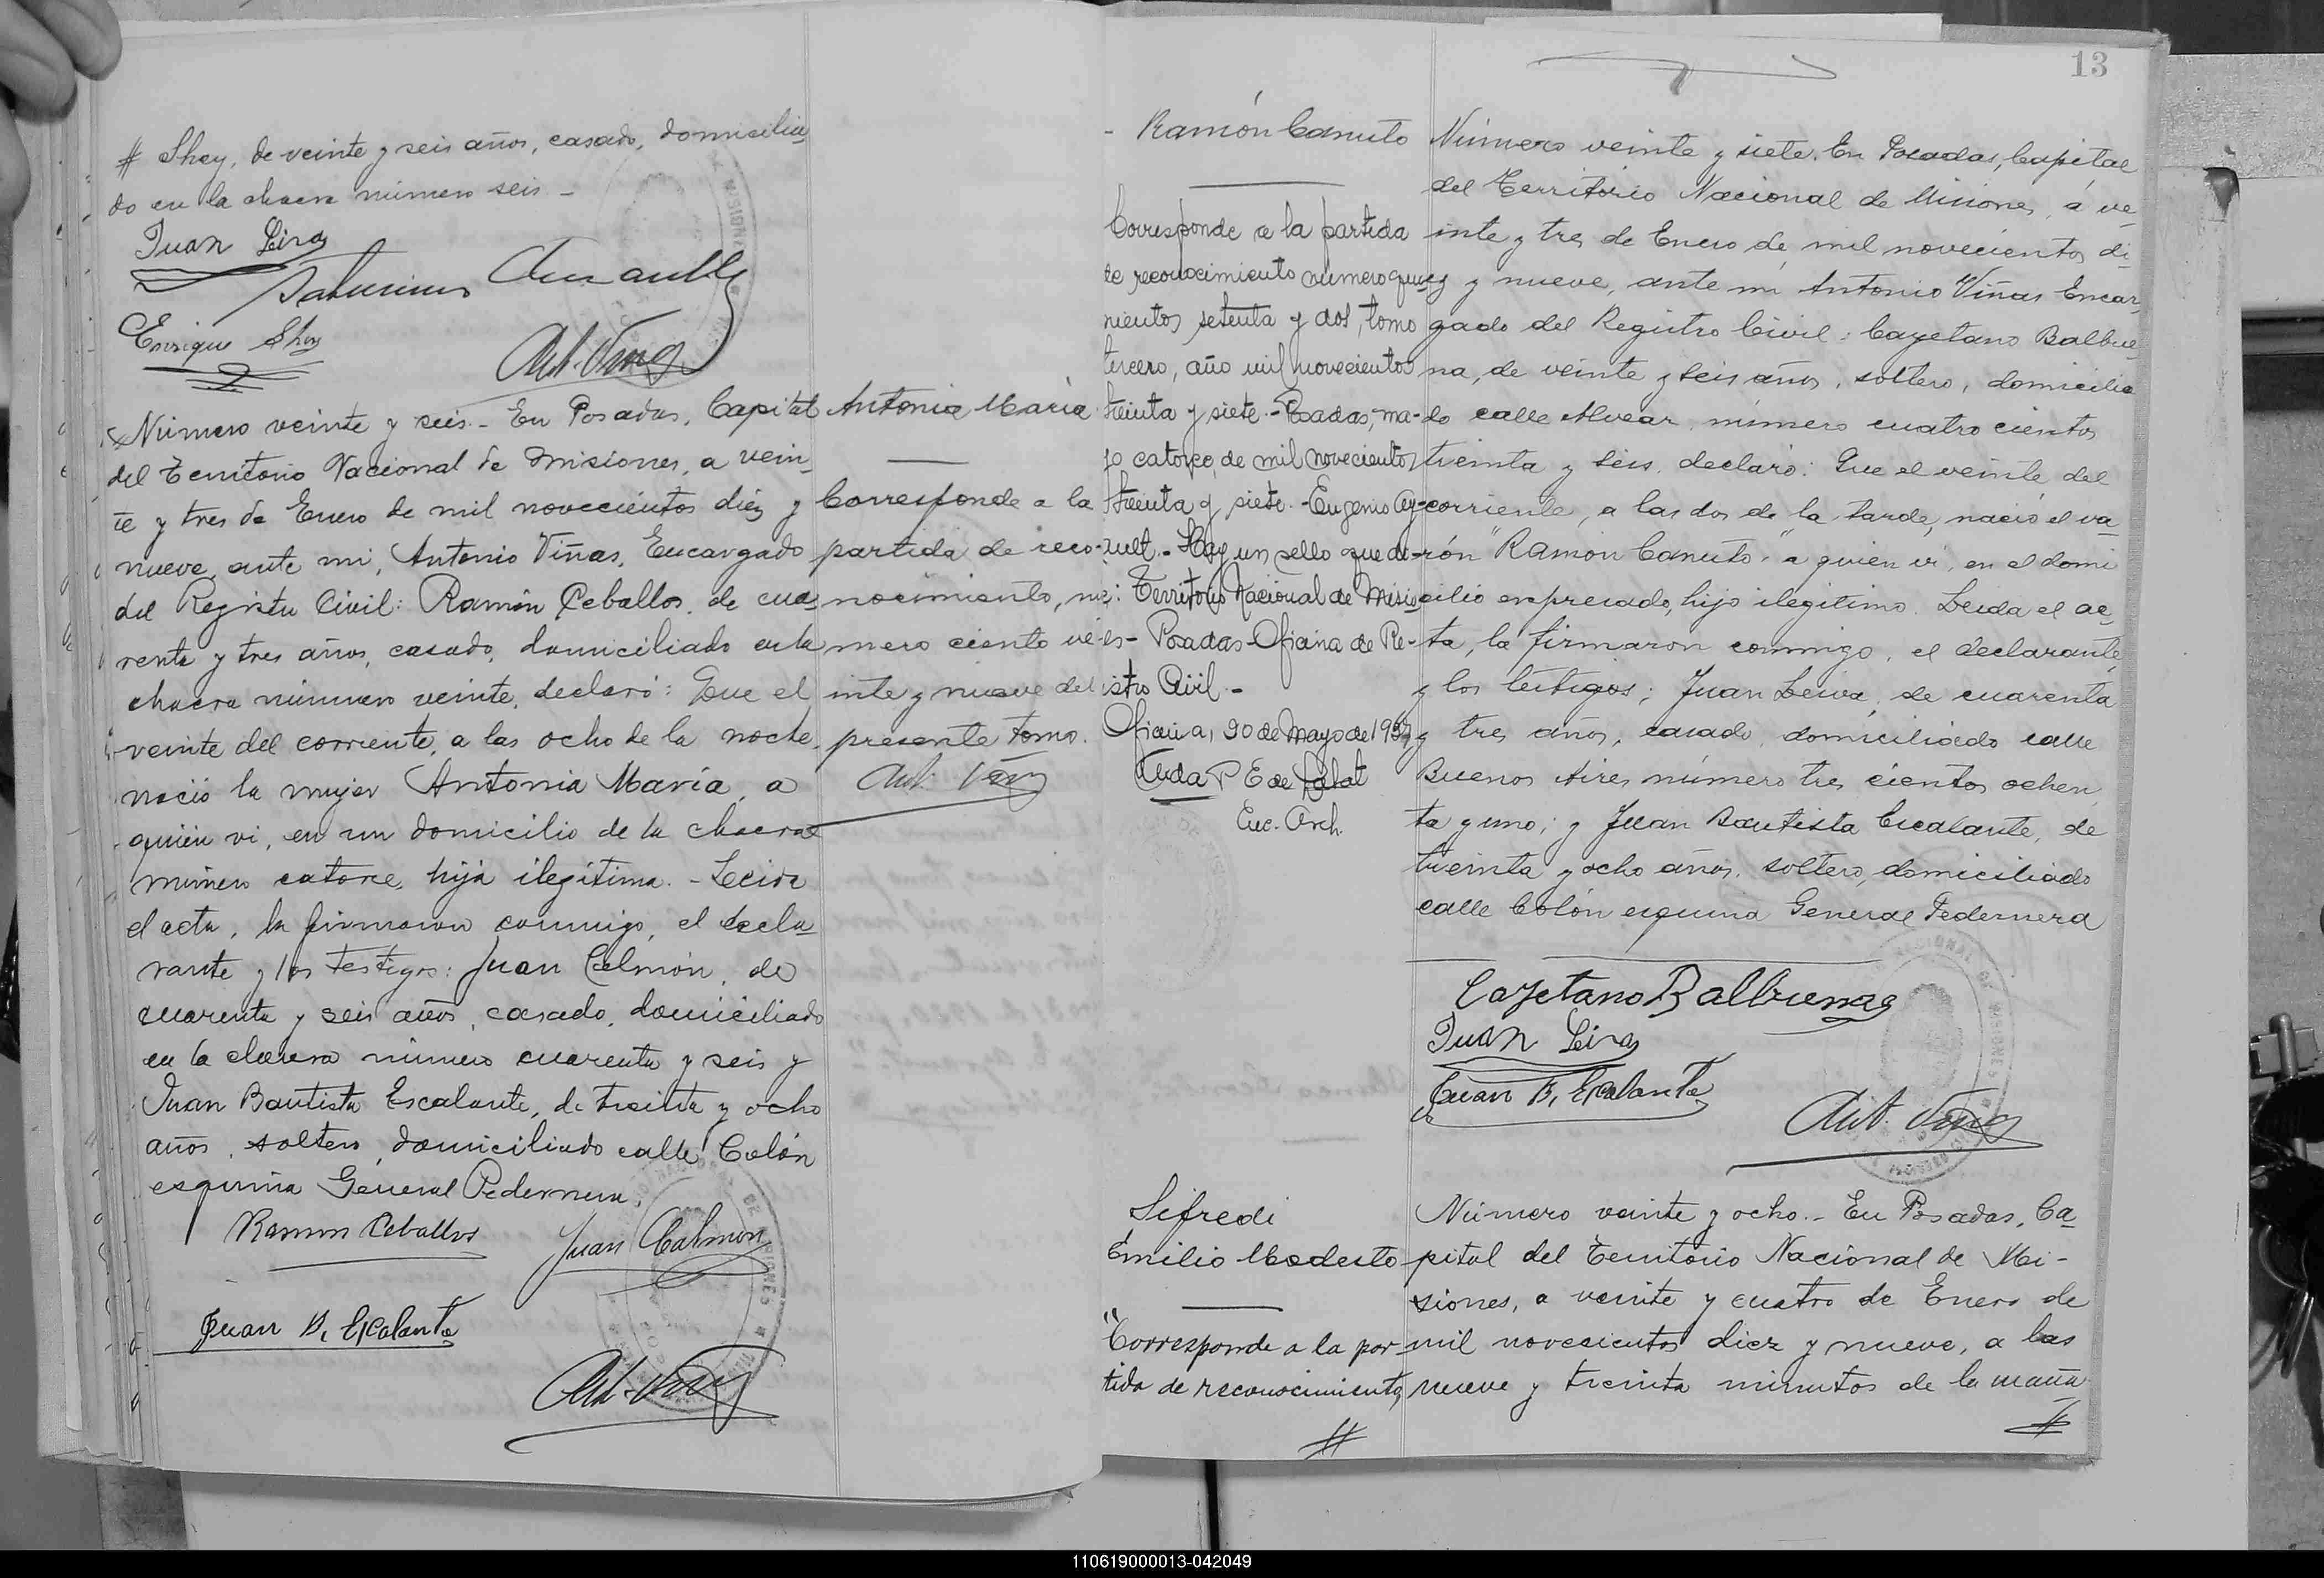 # Shey, de veinte y seis años, casado, domicilia
do en la chacra número seis –
Juan Leiva
Saturnino
Enrique Shey
Ant. Viñas
Número veinte y seis.- En Posadas, Capital
del Territorio Nacional de Misiones, a vein
te y tres de Enero de mil novecientos diez y
nueve, ante mi, Antonio Viñas, Encargado
del Registro Civil: Ramón Ceballos, de cua
renta y tres años, casado, domiciliado en la
chacra número veinte, declaró: Que el
veinte del corriente, a las ocho de la noche,
nació la mujer Antonia María, a
quién vi, en un domicilio de la chacra
número catorce, hija ilegítima. - Leida
el acta, la firmaron conmigo, el decla
rante y los testigos: Juan Calmón, de
cuarenta y seis años, casado, domiciliado
en la chacra número cuarenta y seis y
Juan Bautista Escalante, de treinta y ocho
años, soltero, domiciliado calle Colón
esquina General Pedernera.
Ramon Ceballos
Juan Calmon
Juan B. Escalante
Ant. Viñas
Antonia María
Corresponde a la
partida de reco-
nocimiento, nú
mero ciento ve
inte y nueve del
presente tomo.
Ant. Viñas
13
- Ramón Canuto
Corresponde a la partida
de reconocimiento número qui
nientos setenta y dos, tomo
tercero, año mil novecientos
treinta y siete.- Posadas, ma-
yo catorce de mil novecientos
treinta y siete.- Eugenio
Hay un sello que di-
ce: Territorio Nacional de Misio
nes- Posadas- Oficina de Re-
gistro Civil.-
Oficina, 20 de Mayo de 1937
Enc. Arch.
Número veinte y siete. En Posadas, Capital
del Territorio Nacional de Misiones, á ve
inte y tres de Enero de mil novecientos di
ez y nueve, ante mi Antonio Viñas Encar
gado del Registro Civil: Cayetano Balbue
na, de veinte y seis años, soltero, domicilia
do calle Alvear, número cuatro cientos
treinta y seis, declaró: Que el veinte del
corriente, a las dos de la tarde, nació el va
rón "Ramón Canuto" a quién vi, en el domi
cilio expresado, hijo ilegítimo. Leida el ac
ta, la firmaron conmigo, el declarante
y los testigos; Juan Leiva, de cuarenta
y tres años, casado, domiciliado calle
Buenos Aires número tres cientos ochen
ta y uno; y Juan Bautista Escalante, de
treinta y ocho años, soltero, domiciliado
calle Colón esquina General Pedernera
Cayetano Balbuena
Juan Leiva
Juan B. Escalante
Ant. Viñas
Sifredi
Emilio Modesto
"Corresponde a la par-
tida de reconocimiento,
#
Número veinte y ocho.- En Posadas, Ca
pital del Territorio Nacional de Mi-
siones, a veinte y cuatro de Enero de
mil novecientos diez y nueve, a las
nueve y treinta minutos de la maña
#
110619000013-042049